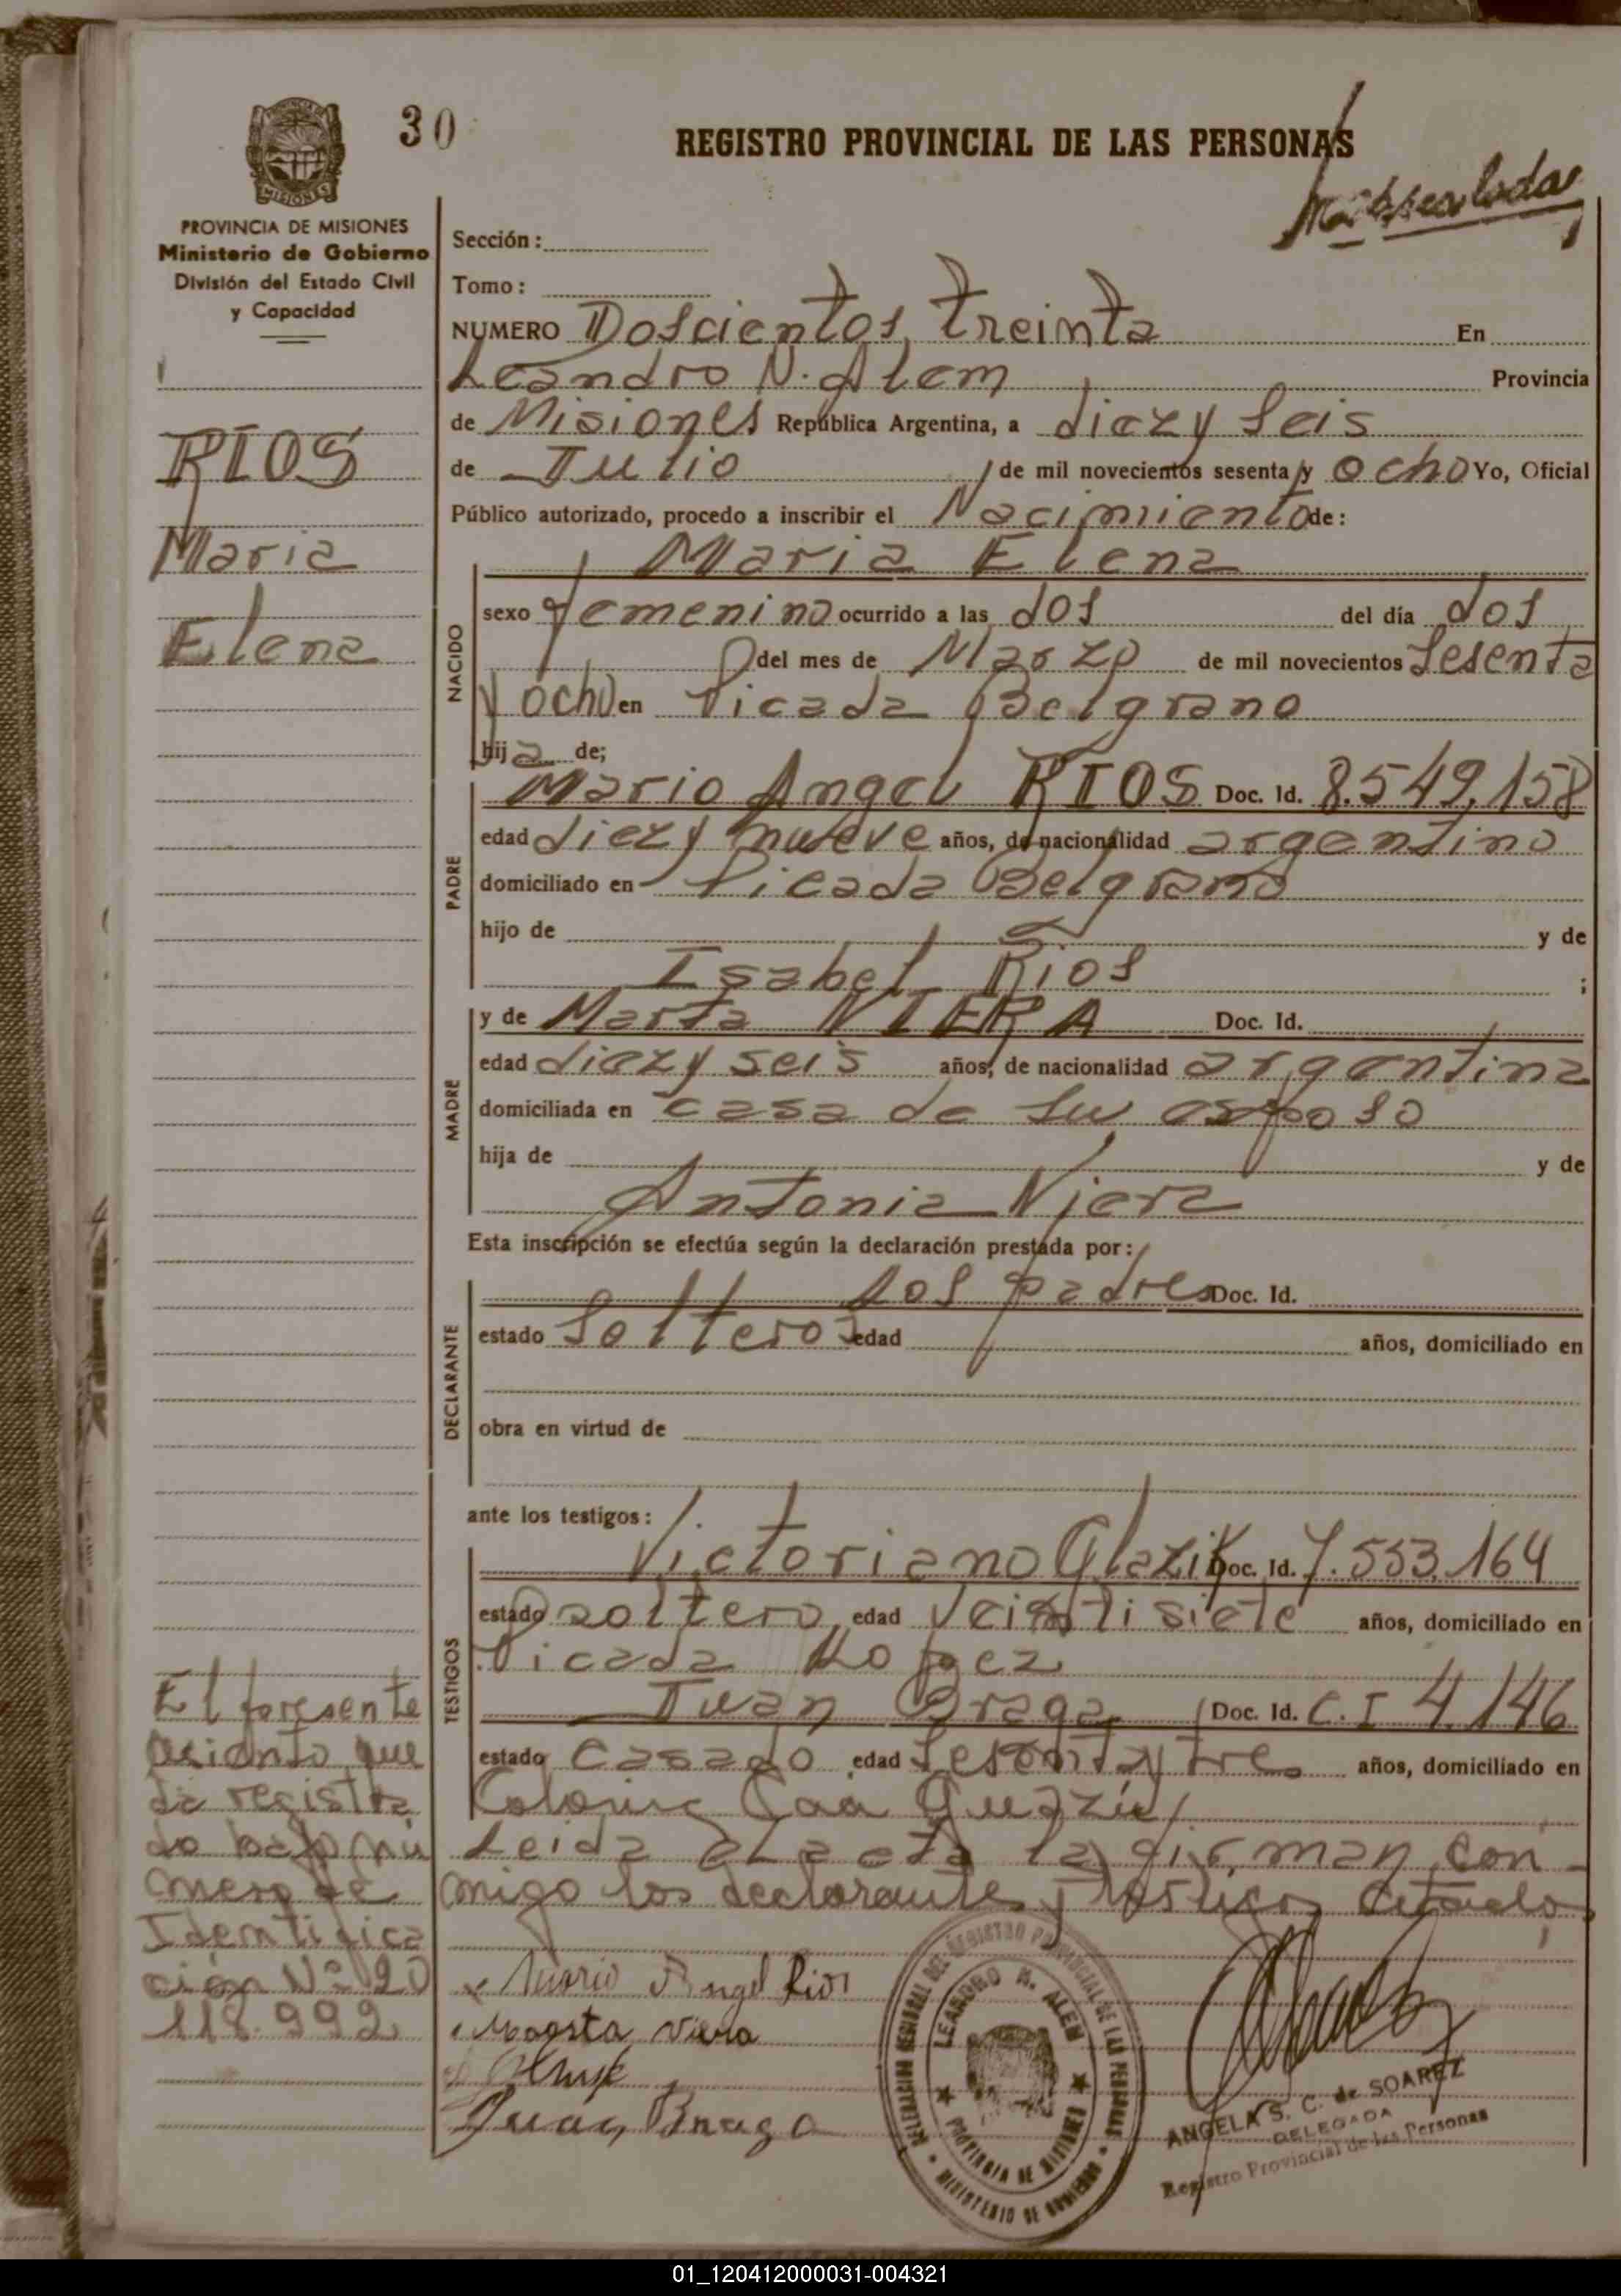 30
REGISTRO PROVINCIAL DE LAS PERSONAS
PROVINCIA DE MISIONES
Ministerio de Gobierno
División del Estado Civil
y Capacidad
Sección:
Tomo:
NUMERO Doscientos treinta En
Leandro N. Alem Provincia
de Misiones República Argentina, a diezy seis
de Julio de mil novecientos sesenta y ocho Yo, Oficial
Público autorizado, procedo a inscribir el Nacimiento de:
RIOS
Maria
Elena
Maria Elena
NACIDO
sexo femenino ocurrido a las dos del día dos
del mes de Marzo de mil novecientos sesenta
y ocho en Picada Belgrano
hija de;
PADRE
Mario Angel RIOS Doc. Id. 8.549.158
edad diezy nueve años, de nacionalidad argentino
domiciliado en Picada Belgrano
hijo de y de
Isabel Rios ;
MADRE
y de Marta VIERA Doc. Id.
edad diezy seis años, de nacionalidad argentina
domiciliada en casa de su esposo
hija de y de
Antonia Viera
Esta inscripción se efectúa según la declaración prestada por:
DECLARANTE
Los padres Doc. Id.
estado Solteros edad años, domiciliado en
obra en virtud de
ante los testigos:
TESTIGOS
Victoriano Glazik Doc. Id. 7.553.164
estado soltero edad Veintisiete años, domiciliado en
Picada Lopez
Juan Braga Doc. Id. C.I 4.146
estado casado edad sesentaytres años, domiciliado en
Colonia Caa Guazú
Leida el acta la firman con-
migo los declarantes y testigos citados
El presente
asiento que
da registra
do bajo nú
mero de
Identifica
ción Nº 20
118.992
Mario Angel Rios
Marta Viera
Juan Braga
DELEGACION GENERAL DEL REGISTRO PROVINCIAL DE LAS PERSONAS
LEANDRO N. ALEM
PROVINCIA DE MISIONES
MINISTERIO DE GOBIERNO
ANGELA S. C. de SOAREZ
DELEGADA
Registro Provincial de las Personas
01_120412000031-004321